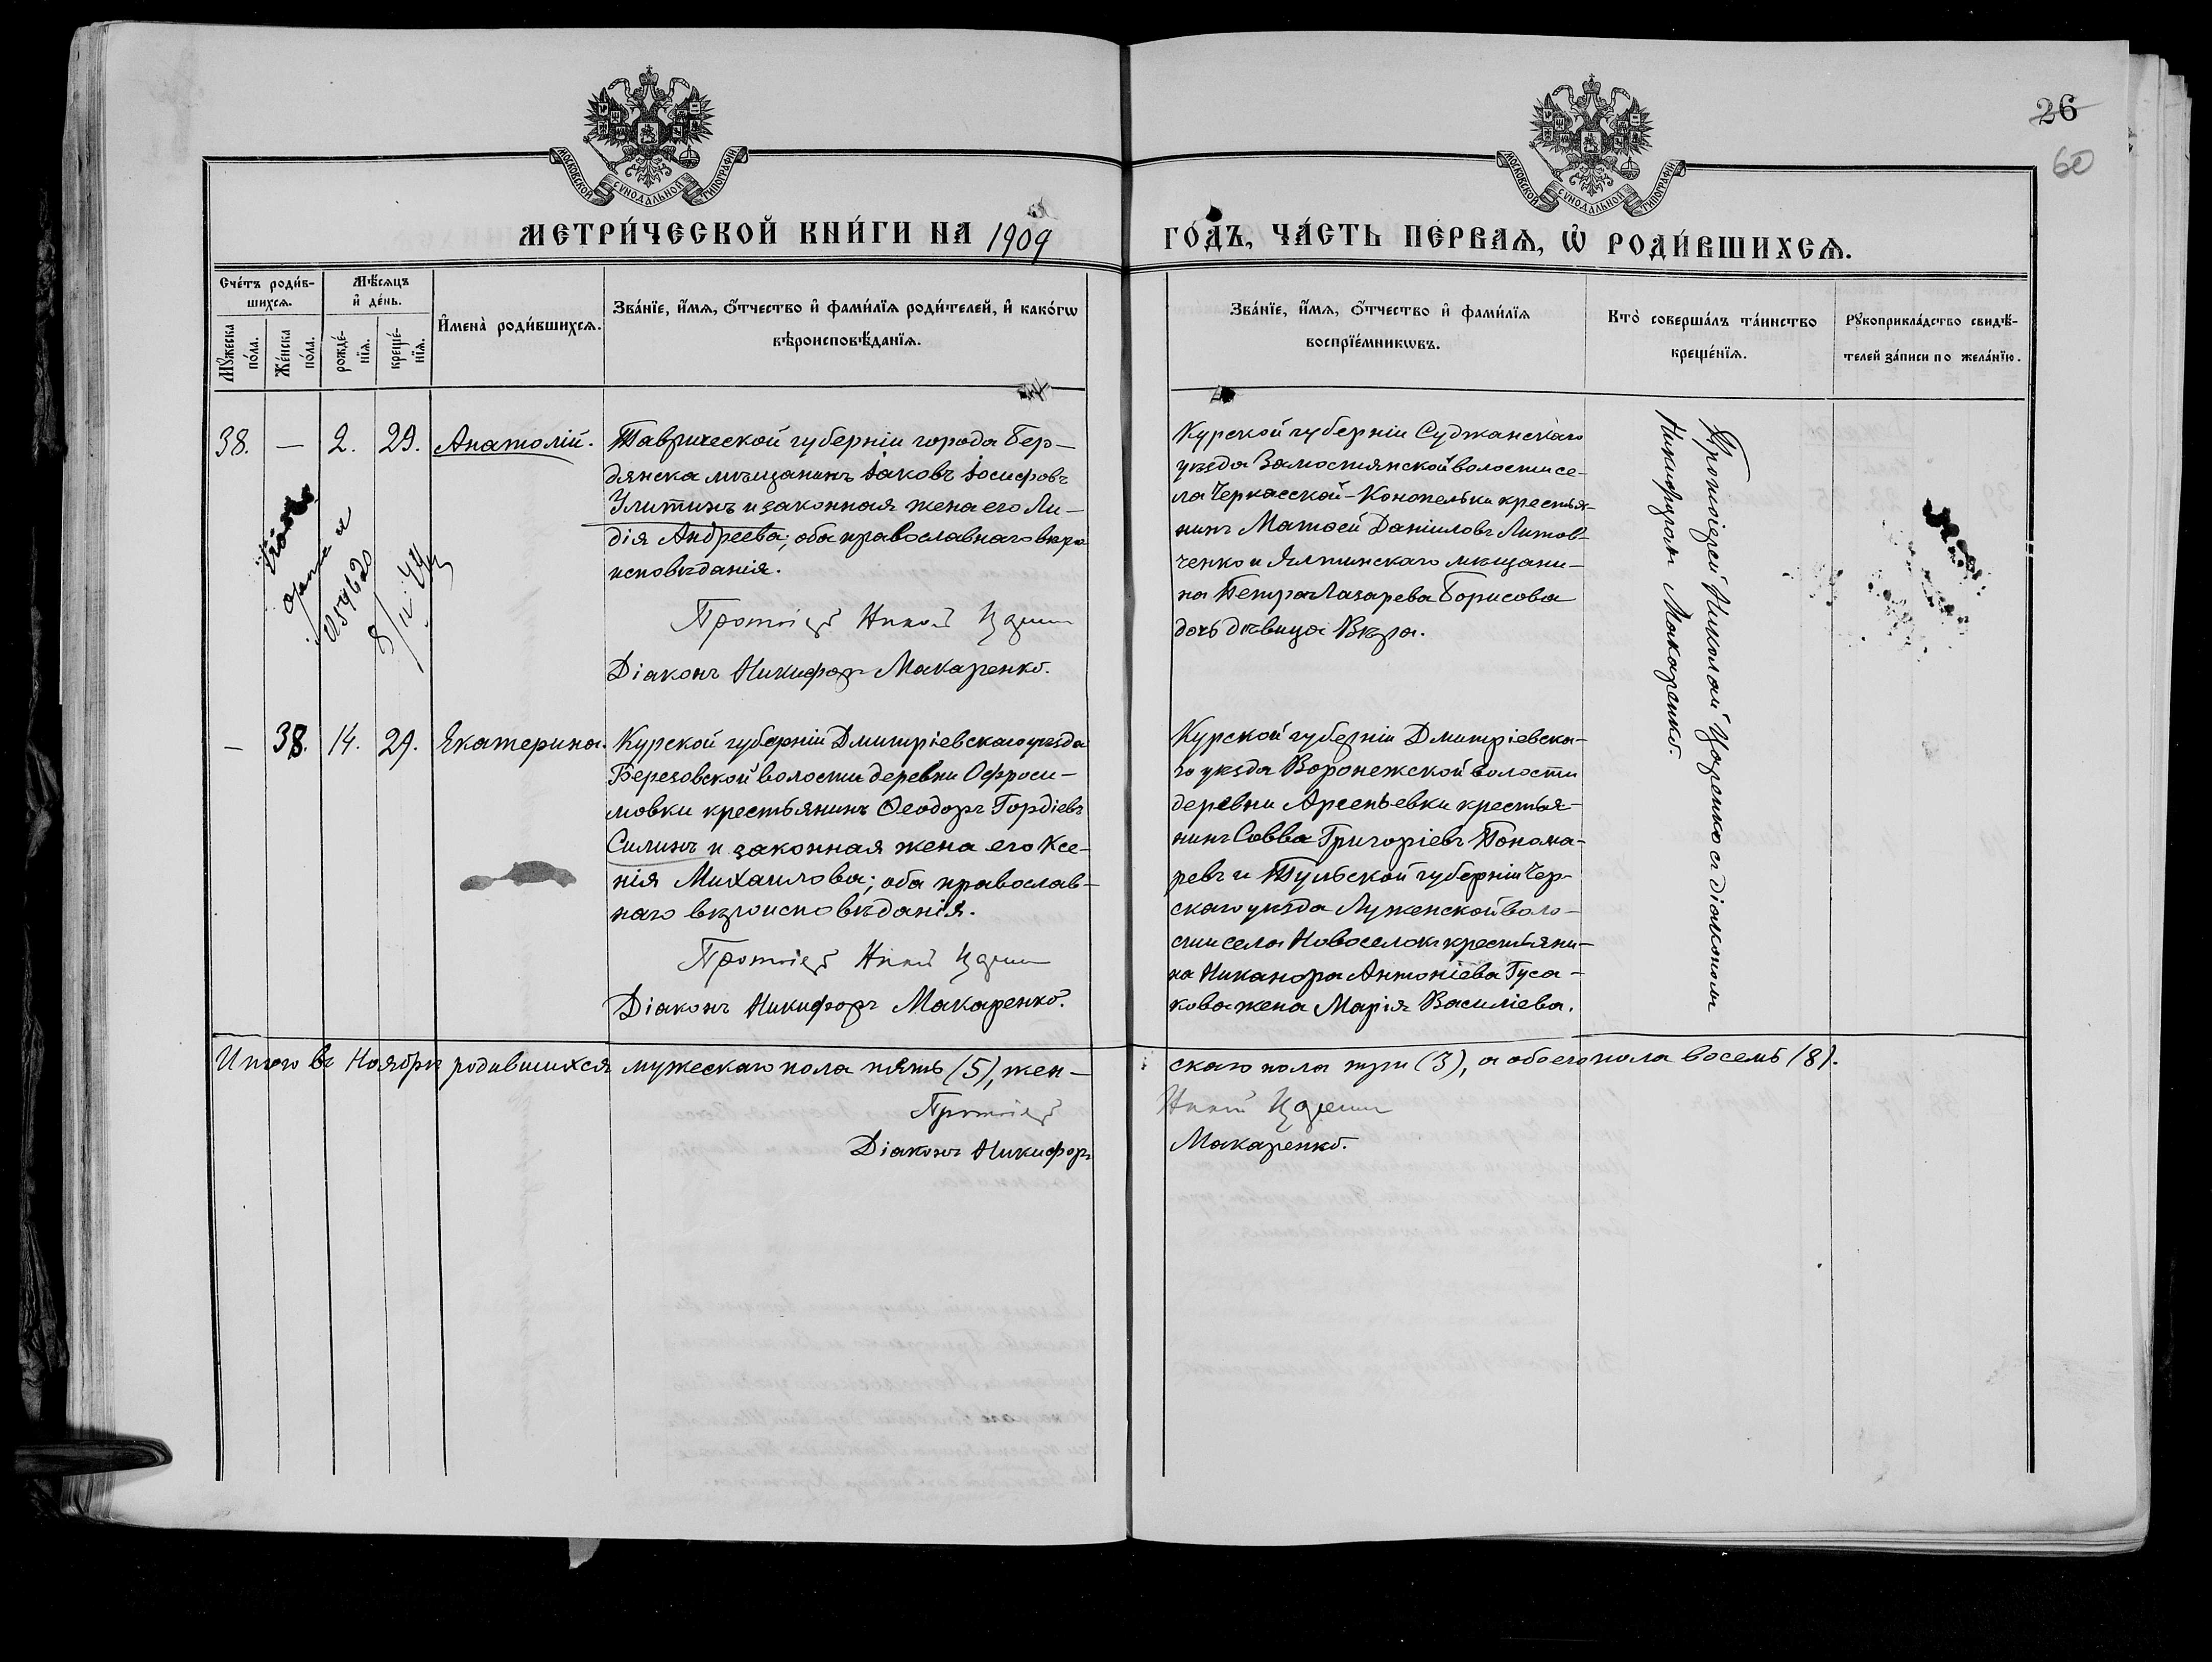 26
60
МОСКОВСКОЙ СѴНОДАЛЬНОЙ ТИПОГРАФІИ
МОСКОВСКОЙ СѴНОДАЛЬНОЙ ТИПОГРАФІИ
МЕТРИ́ЧЕСКОЙ КНИ́ГИ НА 1909 ГО́ДЪ, ЧА́СТЬ ПЕ́РВАѦ, Ѽ РОДИ́ВШИХСѦ.
Сче́тъ роди́в-
шихсѧ.
Мꙋ́жеска по́ла.
Же́нска по́ла.
Мѣ́сѧцъ
и҆ де́нь.
рожде́-
нїѧ.
креще́-
нїѧ.
И҆мена̀ роди́вшихсѧ.
Зва́нїе, и҆́мѧ, ѻ҆́тчество и҆ фами́лїѧ роди́телей, и҆ како́гѡ
вѣроисповѣ́данїѧ.
Зва́нїе, и҆́мѧ, ѻ҆́тчество и҆ фами́лїѧ
воспрїе́мникѡвъ.
Кто̀ соверша́лъ та́инство
креще́нїѧ.
Рꙋкоприкла́дство свидѣ́-
телей за́писи по жела́нїю.
38. — 2. 29. Анатолій.
Таврической губерніи города Бер-
дянска мѣщанинъ Іаковъ Іосифовъ
Улитинъ и законная жена его Ли-
дія Андреева; оба православнаго вѣро
исповѣданія.
Протоіерей
Діаконъ Никифоръ Макаренко.
Курской губерніи Суджанскаго
уѣзда Замостянской волости се-
ла Черкасской-Конопельки крестья-
нинъ Матѳей Даніиловъ Литов-
ченко и Ялтинскаго мѣщани-
на Петра Лазарева Борисова
дочь дѣвица Вѣра.
Протоіерей Николай Царенко съ діакономъ
Никифоромъ Макаренко.
— 38. 14. 29. Екатерина.
Курской губерніи Дмитріевскаго уѣзда
Березовской волости деревни Офроси-
мовки крестьянинъ Ѳеодоръ Гордіевъ
Силинъ и законная жена его Ксе-
нія Михаилова; оба православ-
наго вѣроисповѣданія.
Протоіерей
Діаконъ Никифоръ Макаренко.
Курской губерніи Дмитріевска-
го уѣзда Воронежской волости
деревни Арсеньевки крестья-
нинъ Савва Григоріевъ Понома-
ревъ и Тульской губерніи Чер-
скаго уѣзда Луженской воло-
сти села Новоселокъ крестьяни-
на Никанора Антоніева Гуса-
кова жена Марія Василіева.
Итого въ Ноябрѣ родившихся мужескаго пола пять (5), жен-
скаго пола три (3), а обоего пола восемь (8).
Протоіерей
Діаконъ Никифоръ Макаренко.